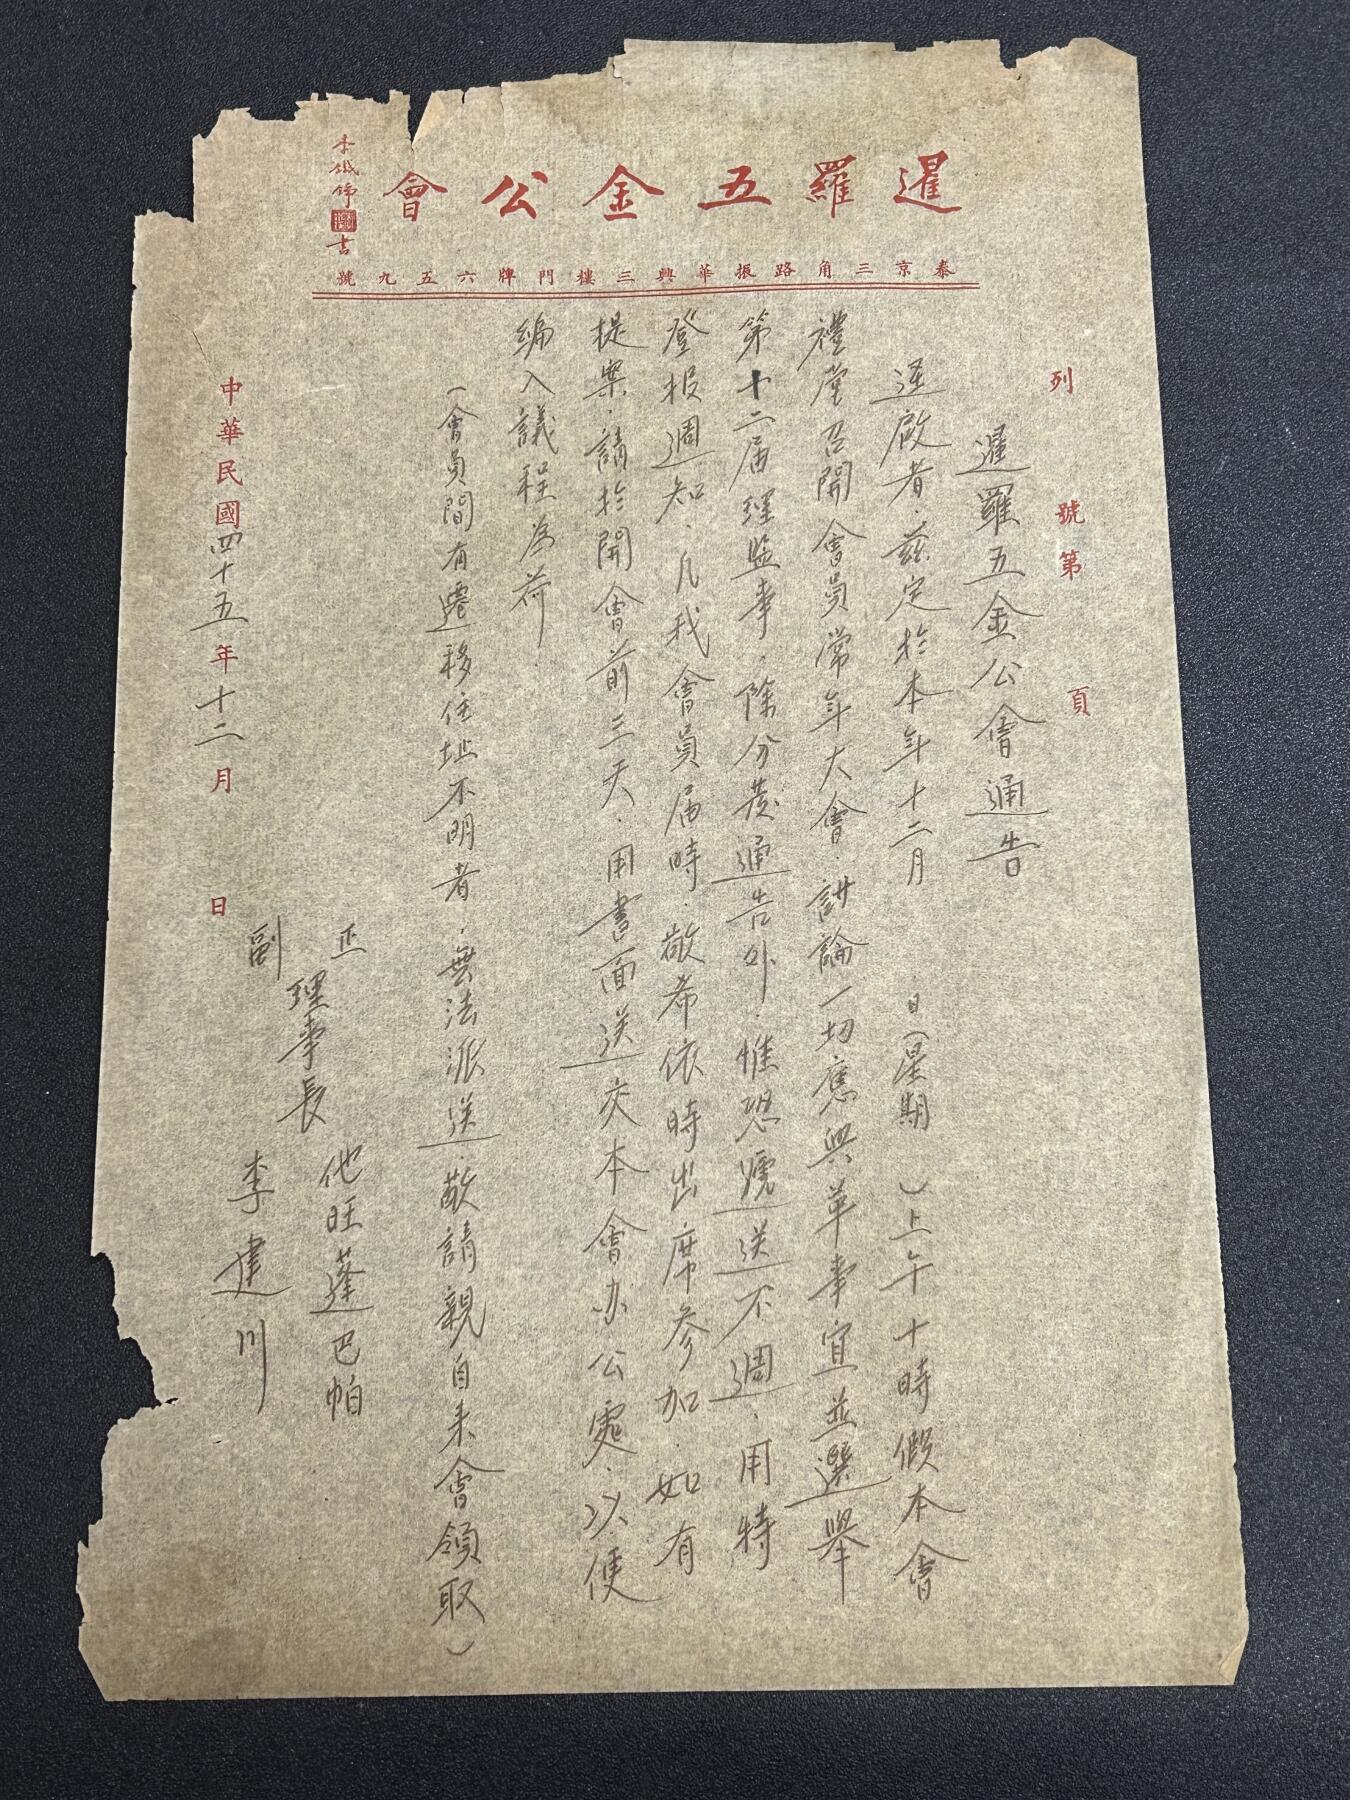 暹羅五金公會
書
泰京三角路振華興三樓門牌六五九號
列 號第 頁
暹羅五金公會通告
逕啟者茲定於本年十二月 日(星期 )上午十時假本會
禮堂召開會員常年大會.討論一切應興革事宜並選舉
第十二届理監事.除分發通告外.惟恐遞送不週.用特
登报週知.凡我會員届時.敬希依時出席參加如有
提案.請於開會前三天.用書面送交本會办公處.以便
編入議程為荷.
(會員間有遷移住址不明者.無法派送.敬請親自来會領取)
正
副
理事長
他旺蓬巴帕
李建川
中華民國四十五年十二月 日